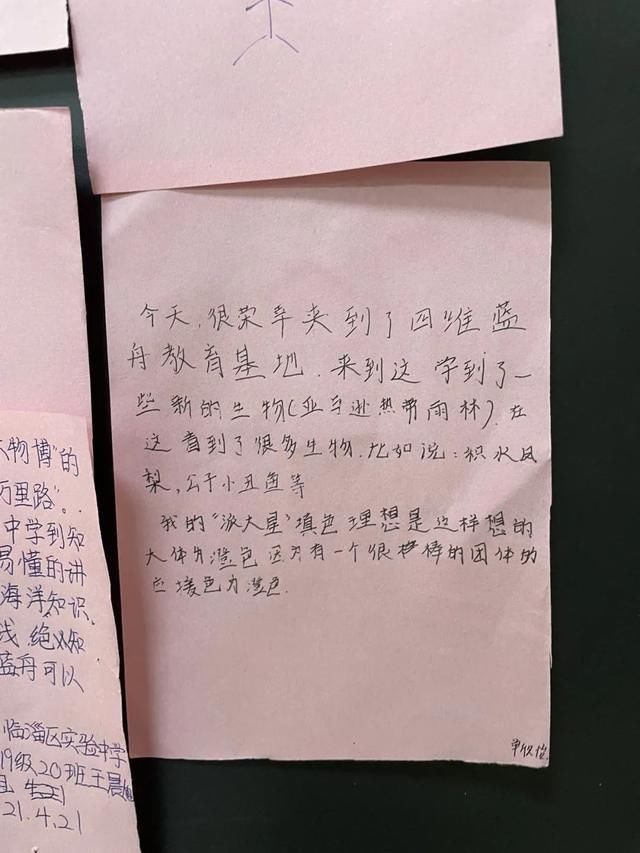 今天,很荣幸来到了四维蓝
舟教育基地.来到这 学到了一
些新的生物(亚马逊热带雨林).在
这 看到了很多生物.比如说:积水凤
梨,公子小丑鱼等
我的“派大星”填色 理想是这样想的
大体为澄色 因为有一个很棒的团体的
色 为澄色.
物博”的
万里路”.
中学到知
易懂的讲
海洋知识
线,绝
蓝舟可以
临淄区实验中学
19级20班王晨
21.4.21